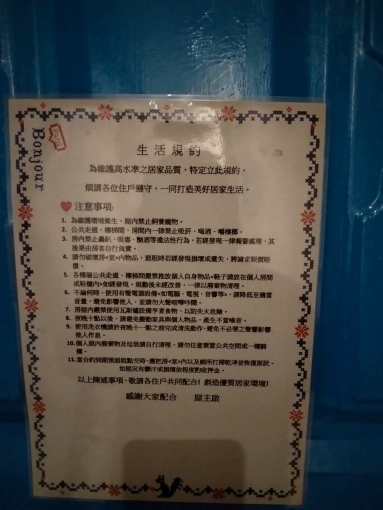 Bonjour
生活規約
為維護高水準之居家品質，特定立此規約，
煩請各位住戶遵守，一同打造美好居家生活。
注意事項:
1. 為維護環境衛生，屋內禁止飼養寵物。
2. 公共走道、樓梯間、房間內一律禁止吸菸、喝酒、嚼檳榔。
3. 房內禁止轟趴、吸毒、酗酒等違法性行為，若經發現一律報警處理，其
後果由房客自行負責。
4. 請勿破壞房<室>內物品，退租時若經發現損壞或遺失，將請求照價賠
償。
5. 各樓層公共走道、樓梯間嚴禁擺放個人自身物品，鞋子請放在個人房間
或鞋櫃內，如經發現，規勸後未經改善，一律以廢棄物清理。
6. 不論何時，使用有聲電器設備<如電腦、電視、音響等>，請降低至適當
音量，避免影響他人，並請勿大聲喧嘩吵鬧。
7. 房屋內嚴禁使用瓦斯爐設備烹煮食物，以防失火危險。
8. 夜晚十點以後，請避免挪動家具與個人物品，產生不當噪音。
9. 使用洗衣機請於夜晚十一點之前完成清洗動作，避免不必要之聲響影響
他人作息。
10. 個人屋內廢棄物及垃圾請自行清理，請勿任意棄置公共空間或一樓騎
樓。
11. 當合約到期預退租點交時，應把房<室>內以及廁所打掃乾淨並恢復原狀，
如屋況有髒汙或損壞依程度酌收押金。
以上陳述事項，敬請各住戶共同配合! 創造優質居家環境!
感謝大家配合 屋主啟